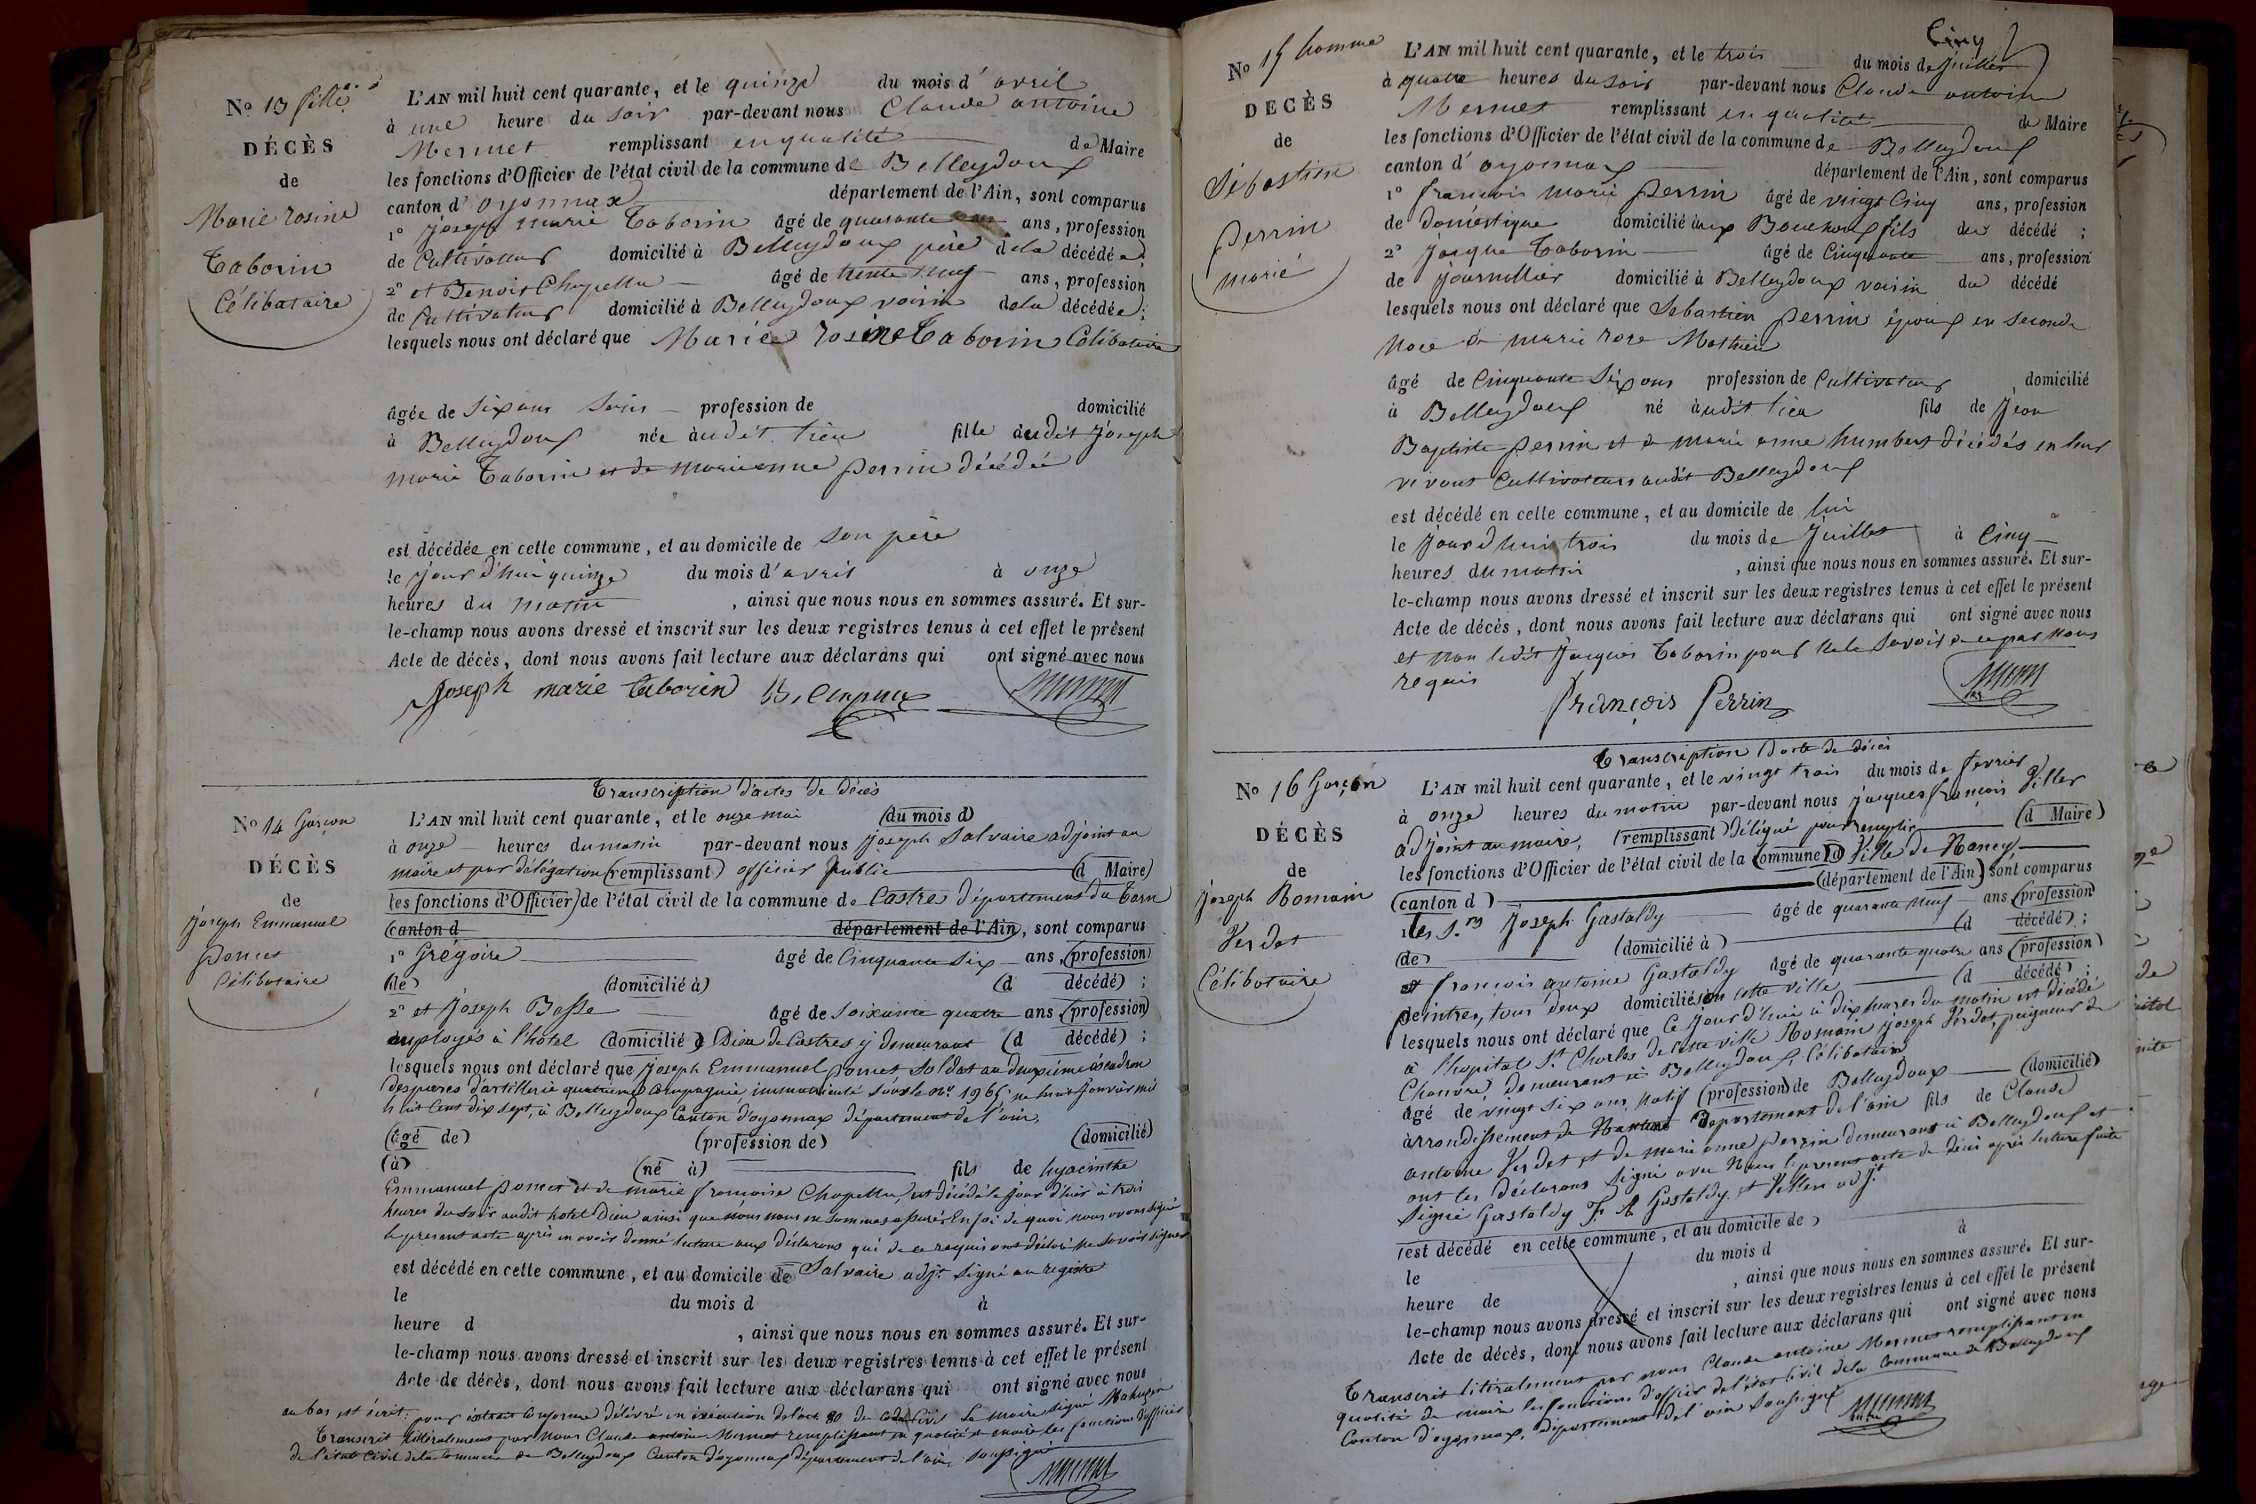 No 13 fille
DÉCÈS
de
Marie rosine
Taborin
Célibataire
L'AN mil huit cent quarante, et le quinze du mois d'avril
à une heure du soir par-devant nous Claude antoine
Mermet remplissant en qualité de Maire
les fonctions d'Officier de l'état civil de la commune de Belleydoux
canton d'oyonnax département de l'Ain, sont comparus
1° Joseph marie Taborin âgé de quarante ans, profession
de Cultivateur domicilié à Belleydoux père de la décédée
2° et Benoit Chapellu âgé de trente neuf ans, profession
de Cultivateur domicilié à Belleydoux voisin de la décédée;
lesquels nous ont déclaré que Marie rosine Taborin Célibataire
âgée de six ans profession de domicilié
à Belleydoux née audit lieu fille dudit Joseph
marie Taborin et de marie anne perrin décédée
est décédée en cette commune, et au domicile de son père
le jour d'hui quinze du mois d'avril à onze
heures du matin, ainsi que nous nous en sommes assuré. Et sur-
le-champ nous avons dressé et inscrit sur les deux registres tenus à cet effet le présent
Acte de décès, dont nous avons fait lecture aux déclarans qui ont signé avec nous
Joseph marie taborin
No 14 Garçon
DÉCÈS
de
joseph Emmanuel
poncet
Célibataire
Transcription d'actes de décès
L'AN mil huit cent quarante, et le onze mai (du mois d)
à onze heures du matin par-devant nous joseph Salvaire adjoint au
maire et par délégation (remplissant) officier public (d Maire)
(les fonctions d'Officier) de l'état civil de la commune de Castres département du Tarn
(canton d département de l'Ain, sont comparus
1° Grégoire âgé de Cinquante six ans, (profession)
(de) (domicilié à) (d décédé);
2° et Joseph Basse âgé de soixante quatre ans (profession)
employés à l'hôtel (domicilié à) Dieu de Castres y demeurant (d décédé);
lesquels nous ont déclaré que joseph Emmanuel poncet soldat au deuxième escadron
des parcs d'artillerie quatrième Compagnie immatriculé sous le nr. 1965, né huit janvier mil
huit Cent dix sept, à Belleydoux Canton d'oyonnax département de l'ain,
(âgé de) (profession de) (domicilié)
(à) (né à) fils de hyacinthe
Emmanuel poncet et de marie françoise Chapellu, est décédé le jour d'hier à trois
heures du soir audit hotel Dieu ainsi que nous nous en sommes assuré. En foi de quoi nous avons signé
le present acte après en avoir donné lecture aux déclarans qui de ce requis ont déclaré ne savoir signer
est décédé en cette commune, et au domicile de Salvaire adjt. signé au registre
le du mois d à
heure d , ainsi que nous nous en sommes assuré. Et sur-
le-champ nous avons dressé et inscrit sur les deux registres tenus à cet effet le présent
Acte de décès, dont nous avons fait lecture aux déclarans qui ont signé avec nous
au bas est écrit: pour extrait Conforme délivré en exécution de l'art. 80 du Code Civil Le maire signé
Transcrit littéralement par nous Claude antoine Mermet remplissant en qualité de maire les fonctions d'officier
de l'état Civil de la commune de Belleydoux Canton d'oyonnax département de l'ain, soussigné
No 15 homme
DECÈS
de
Sébastien
perrin
marié
Cinq
L'AN mil huit cent quarante, et le trois du mois de Juillet
à quatre heures du soir par-devant nous Claude antoine
Mermet remplissant en qualité de Maire
les fonctions d'Officier de l'état civil de la commune de Belleydoux
canton d'oyonnax département de l'Ain, sont comparus
1° francois marie perrin âgé de vingt Cinq ans, profession
de doméstique domicilié aux Bouchoux fils du décédé;
2° Jacque Taborin âgé de Cinquante ans, profession
de journallier domicilié à Belleydoux voisin du décédé
lesquels nous ont déclaré que Sebastien perrin époux en seconde
Noce de marie rose Mathieu
âgé de Cinquante Six ans profession de Cultivateur domicilié
à Belleydoux né audit lieu fils de Jean
Baptiste perrin et de marie anne humbert décédés en leur
vivant Cultivateurs audit Belleydoux
est décédé en cette commune, et au domicile de lui
le jour d'hui trois du mois de Juillet à Cinq
heures du matin, ainsi que nous nous en sommes assuré. Et sur-
le-champ nous avons dressé et inscrit sur les deux registres tenus à cet effet le présent
Acte de décès, dont nous avons fait lecture aux déclarans qui ont signé avec nous
et non ledit Jacques Taborin pour ne le savoir de ce par nous
requis
François Perrin
No 16 Garçon
DÉCÈS
de
joseph Romain
Verdet
Célibataire
Transcription d'acte de décès
L'AN mil huit cent quarante, et le vingt trois du mois de fevrier
à onze heures du matin par-devant nous jacques françois Viller
adjoint au maire, (remplissant) délégué pour remplir (d Maire)
les fonctions d'Officier de l'état civil de la (ommune d) Ville de Nancy
(canton d) (département de l'Ain) sont comparus
1° les S.rs Joseph Gastaldy âgé de quarante neuf ans (profession)
(de) (domicilié à) (d décédé);
et francois antoine Gastaldy âgé de quarante quatre ans (profession)
peintres, tous deux domiciliés en cette ville (d décédé);
lesquels nous ont déclaré que Ce jour d'hui à dix heures du matin est décédé
à l'hopital St. Charles de cette ville Romain joseph Verdet, peigneur de
Chanvre demeurant à Belleydoux, Célibataire
âgé de vingt six ans, natif (profession) de Belleydoux (domicilié)
arrondissement de Nantua Département de l'ain fils de Claude
antoine Verdet et de marie anne perrin demeurant à Belleydoux et
ont les déclarans signé avec Nous le présent acte de décès après lecture faite
signé Gastaldy F. A Gastaldy et Viller adjt.
(est décédé en cette commune, et au domicile de)
le du mois d à
heure de , ainsi que nous nous en sommes assuré. Et sur-
le-champ nous avons dressé et inscrit sur les deux registres tenus à cet effet le présent
Acte de décès, dont nous avons fait lecture aux déclarans qui ont signé avec nous
Transcrit litéralement par nous Claude antoine Mermet remplissant en
qualité de maire les fonctions d'officier de l'état civil de la Commune de Belleydoux
Canton d'oyonnax, département de l'ain soussigné